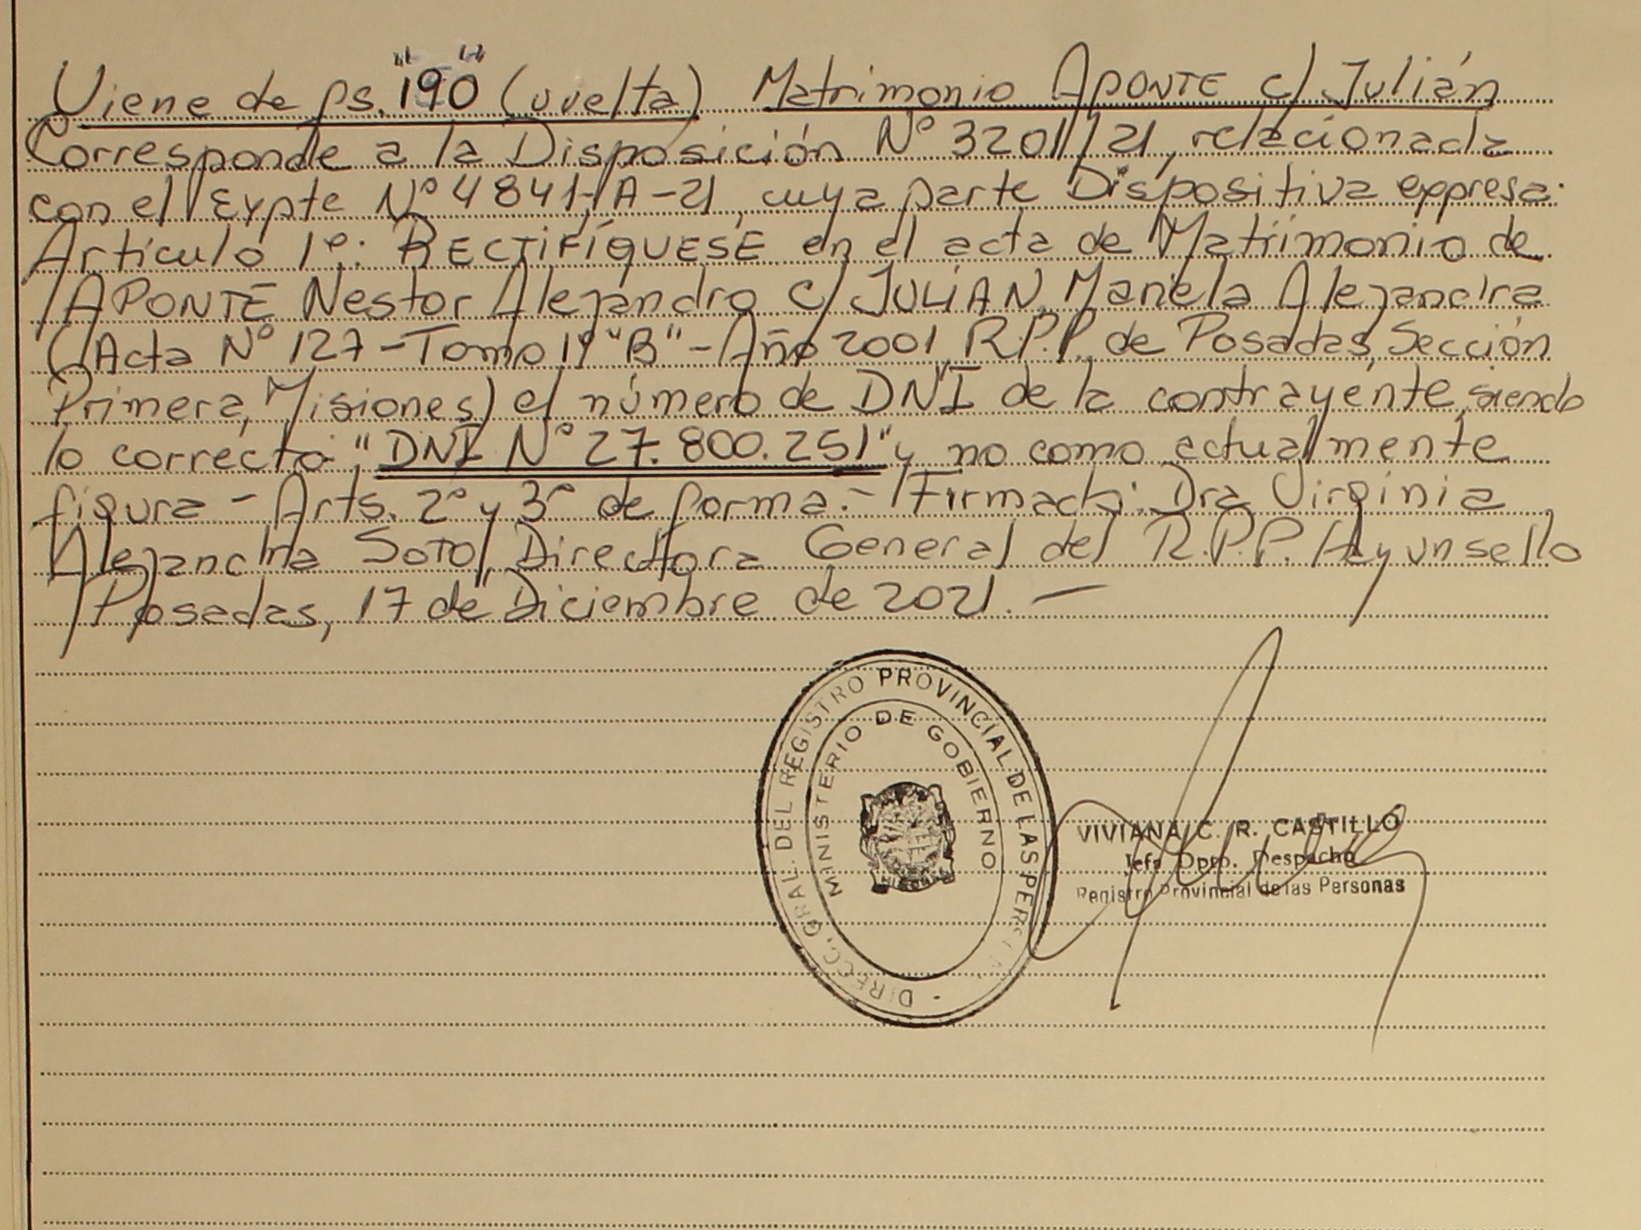 Viene de fs. "190" (vuelta) Matrimonio APONTE c/ Julián
Corresponde a la Disposición N° 3201/21, relacionada
con el Expte N° 4841-A-21, cuya parte Dispositiva expresa:
Artículo 1º: RECTIFÍQUESE en el acta de Matrimonio de
APONTE Nestor Alejandro c/ JULIAN, Mariela Alejandra
(Acta N° 127 - Tomo 1º "B" - Año 2001, R.P.P. de Posadas, Sección
Primera, Misiones) el número de DNI de la contrayente, siendo
lo correcto "DNI N° 27.800.251" y no como actualmente
figura - Arts. 2° y 3° de forma. - Firmado: Dra Virginia
Alejandra Soto, Directora General del R.P.P. Hay un sello
Posadas, 17 de Diciembre de 2021. —
DIRECC. GRAL. DEL REGISTRO PROVINCIAL DE LAS PERSONAS -
MINISTERIO DE GOBIERNO
VIVIANA C. R. CASTILLO
Jefe Dpto. Despacho
Registro Provincial de las Personas